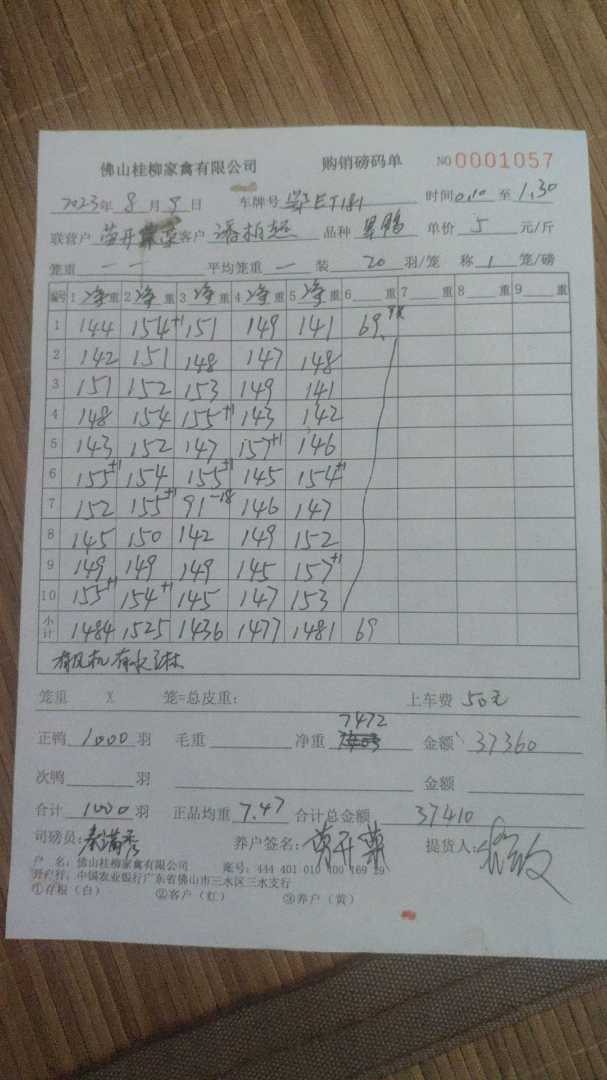 佛山桂柳家禽有限公司 购销磅码单 NO 0001057
2023年 8 月 9 日 车牌号 鄂ET181 时间0.10 至 1.30
联营户 客户 潘柏超 品种 黑鸭 单价 5 元/斤
笼重 — — 平均笼重 — 装 20 羽/笼 称 1 笼/磅
编号 1 净重 2 净重 3 净重 4 净重 5 净重 6 重 7 重 8 重 9 重
1 144 154+1 151 149 141 69
2 142 151 148 147 148
3 151 152 153 149 141
4 148 154 155+1 143 142
5 143 152 147 157+1 146
6 155+1 154 155+1 145 154+1
7 152 155+1 91-18 146 147
8 145 150 142 149 152
9 149 149 149 145 157+1
10 155+1 154+1 145 147 153
小计 1484 1525 1436 1477 1481 69
有风机有水淋
笼重 X 笼=总皮重： 上车费 50元
7472
正鸭 1000 羽 毛重 净重 金额 37360
次鸭 羽 金额
合计 1000 羽 正品均重 7.47 合计总金额 37410
司磅员： 养户签名： 提货人：
户 名：佛山桂柳家禽有限公司 账号：444 401 010 400 169 29
开户行：中国农业银行广东省佛山市三水区三水支行
①存根（白） ②客户（红） ③养户（黄）